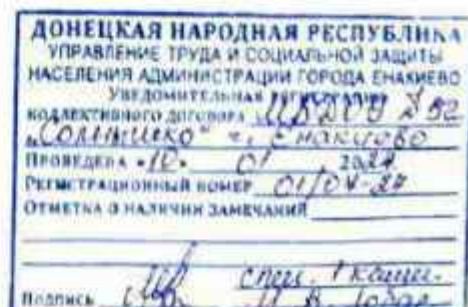 ДОНЕЦКАЯ НАРОДНАЯ РЕСПУБЛИКА
УПРАВЛЕНИЕ ТРУДА И СОЦИАЛЬНОЙ ЗАЩИТЫ
НАСЕЛЕНИЯ АДМИНИСТРАЦИИ ГОРОДА ЕНАКИЕВО
УВЕДОМИТЕЛЬНАЯ РЕГИСТРАЦИЯ
КОЛЛЕКТИВНОГО ДОГОВОРА МБДОУ
"Солнышко" г. Енакиево
ПРОВЕДЕНА «10» 01 2024
РЕГИСТРАЦИОННЫЙ НОМЕР 01/04-24
ОТМЕТКА О НАЛИЧИИ ЗАМЕЧАНИЙ
спец. I катег.
Подпись